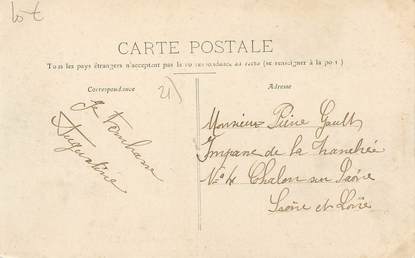 Lot
CARTE POSTALE
Tous les pays étrangers n'acceptent pas la correspondance au recto (se renseigner à la poste)
Correspondance
21)
Adresse
Je
Augustine
Monsieur Pierre Gault
Impasse de la Tranchée
N° 4 Chalon sur Saône
Saône et Loire